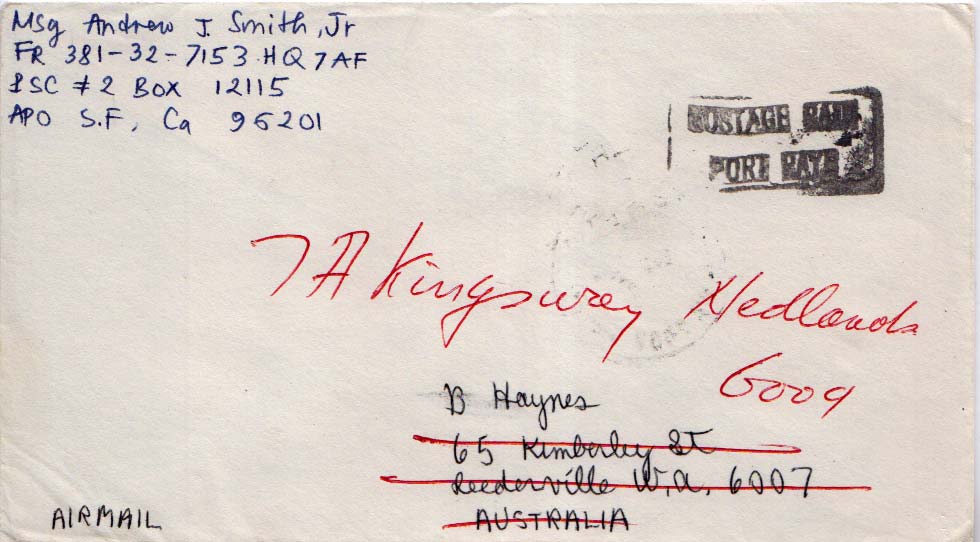 MSg Andrew J. Smith, Jr
FR 381-32-7153 HQ 7AF
PSC # 2 Box 12115
APO S.F, Ca 96201
POSTAGE PAID
PORT PAYE
7A Kingsway Nedlands
6009
B Haynes
65 Kimberley St
Leederville W.A, 6007
AUSTRALIA
AIRMAIL